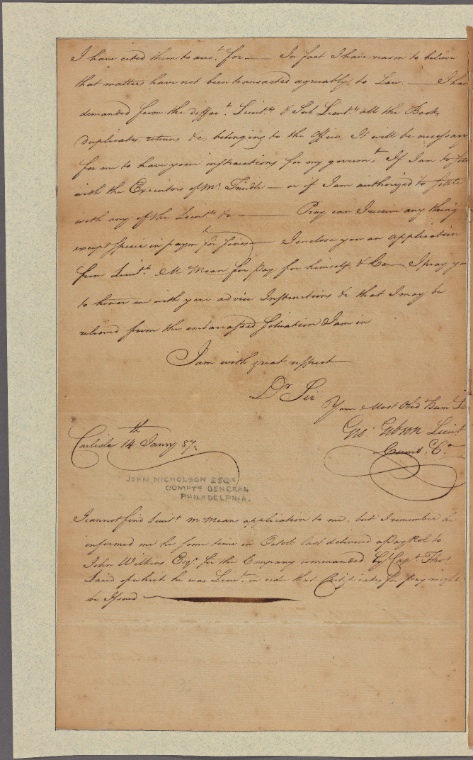 I have cited them to ansr for — In fact I have reason to believe
that matters have not been transacted agreeably to Law — I have
demanded from the differt Lieuts & Sub Lieuts all the Books
duplicates returns &c belonging to the Office. It will be necessary
for me to have your instructions for my governmt If I am to settle
with the Executors of Mr Smith — or if I am authorized to settle
with any of the Lieuts &c — Pray can I receive any thing
except specie in paymt for fines — I enclose you an application
from Lieut. McMean for pay for himself & Co — I pray you
to honor me with your advice Instructions &c that I may be
relieved from the embarrassed situation I am in
I am with great respect
Dr Sir
Your Most Obd Hum
Geo. Gibson Lieut
Cumb. C.
Carlisle 14th Janry 87.
JOHN NICHOLSON ESQR
COMPTR GENERAL
PHILADELPHIA.
I cannot find Lieut McMean application to me, but I remember he
informed me he some time in last delivered a pay Rol to
John Wilkins Esqr for the Company commanded by Capt Thos
of which he was Lieut in order that Certificates for pay might
be Issued